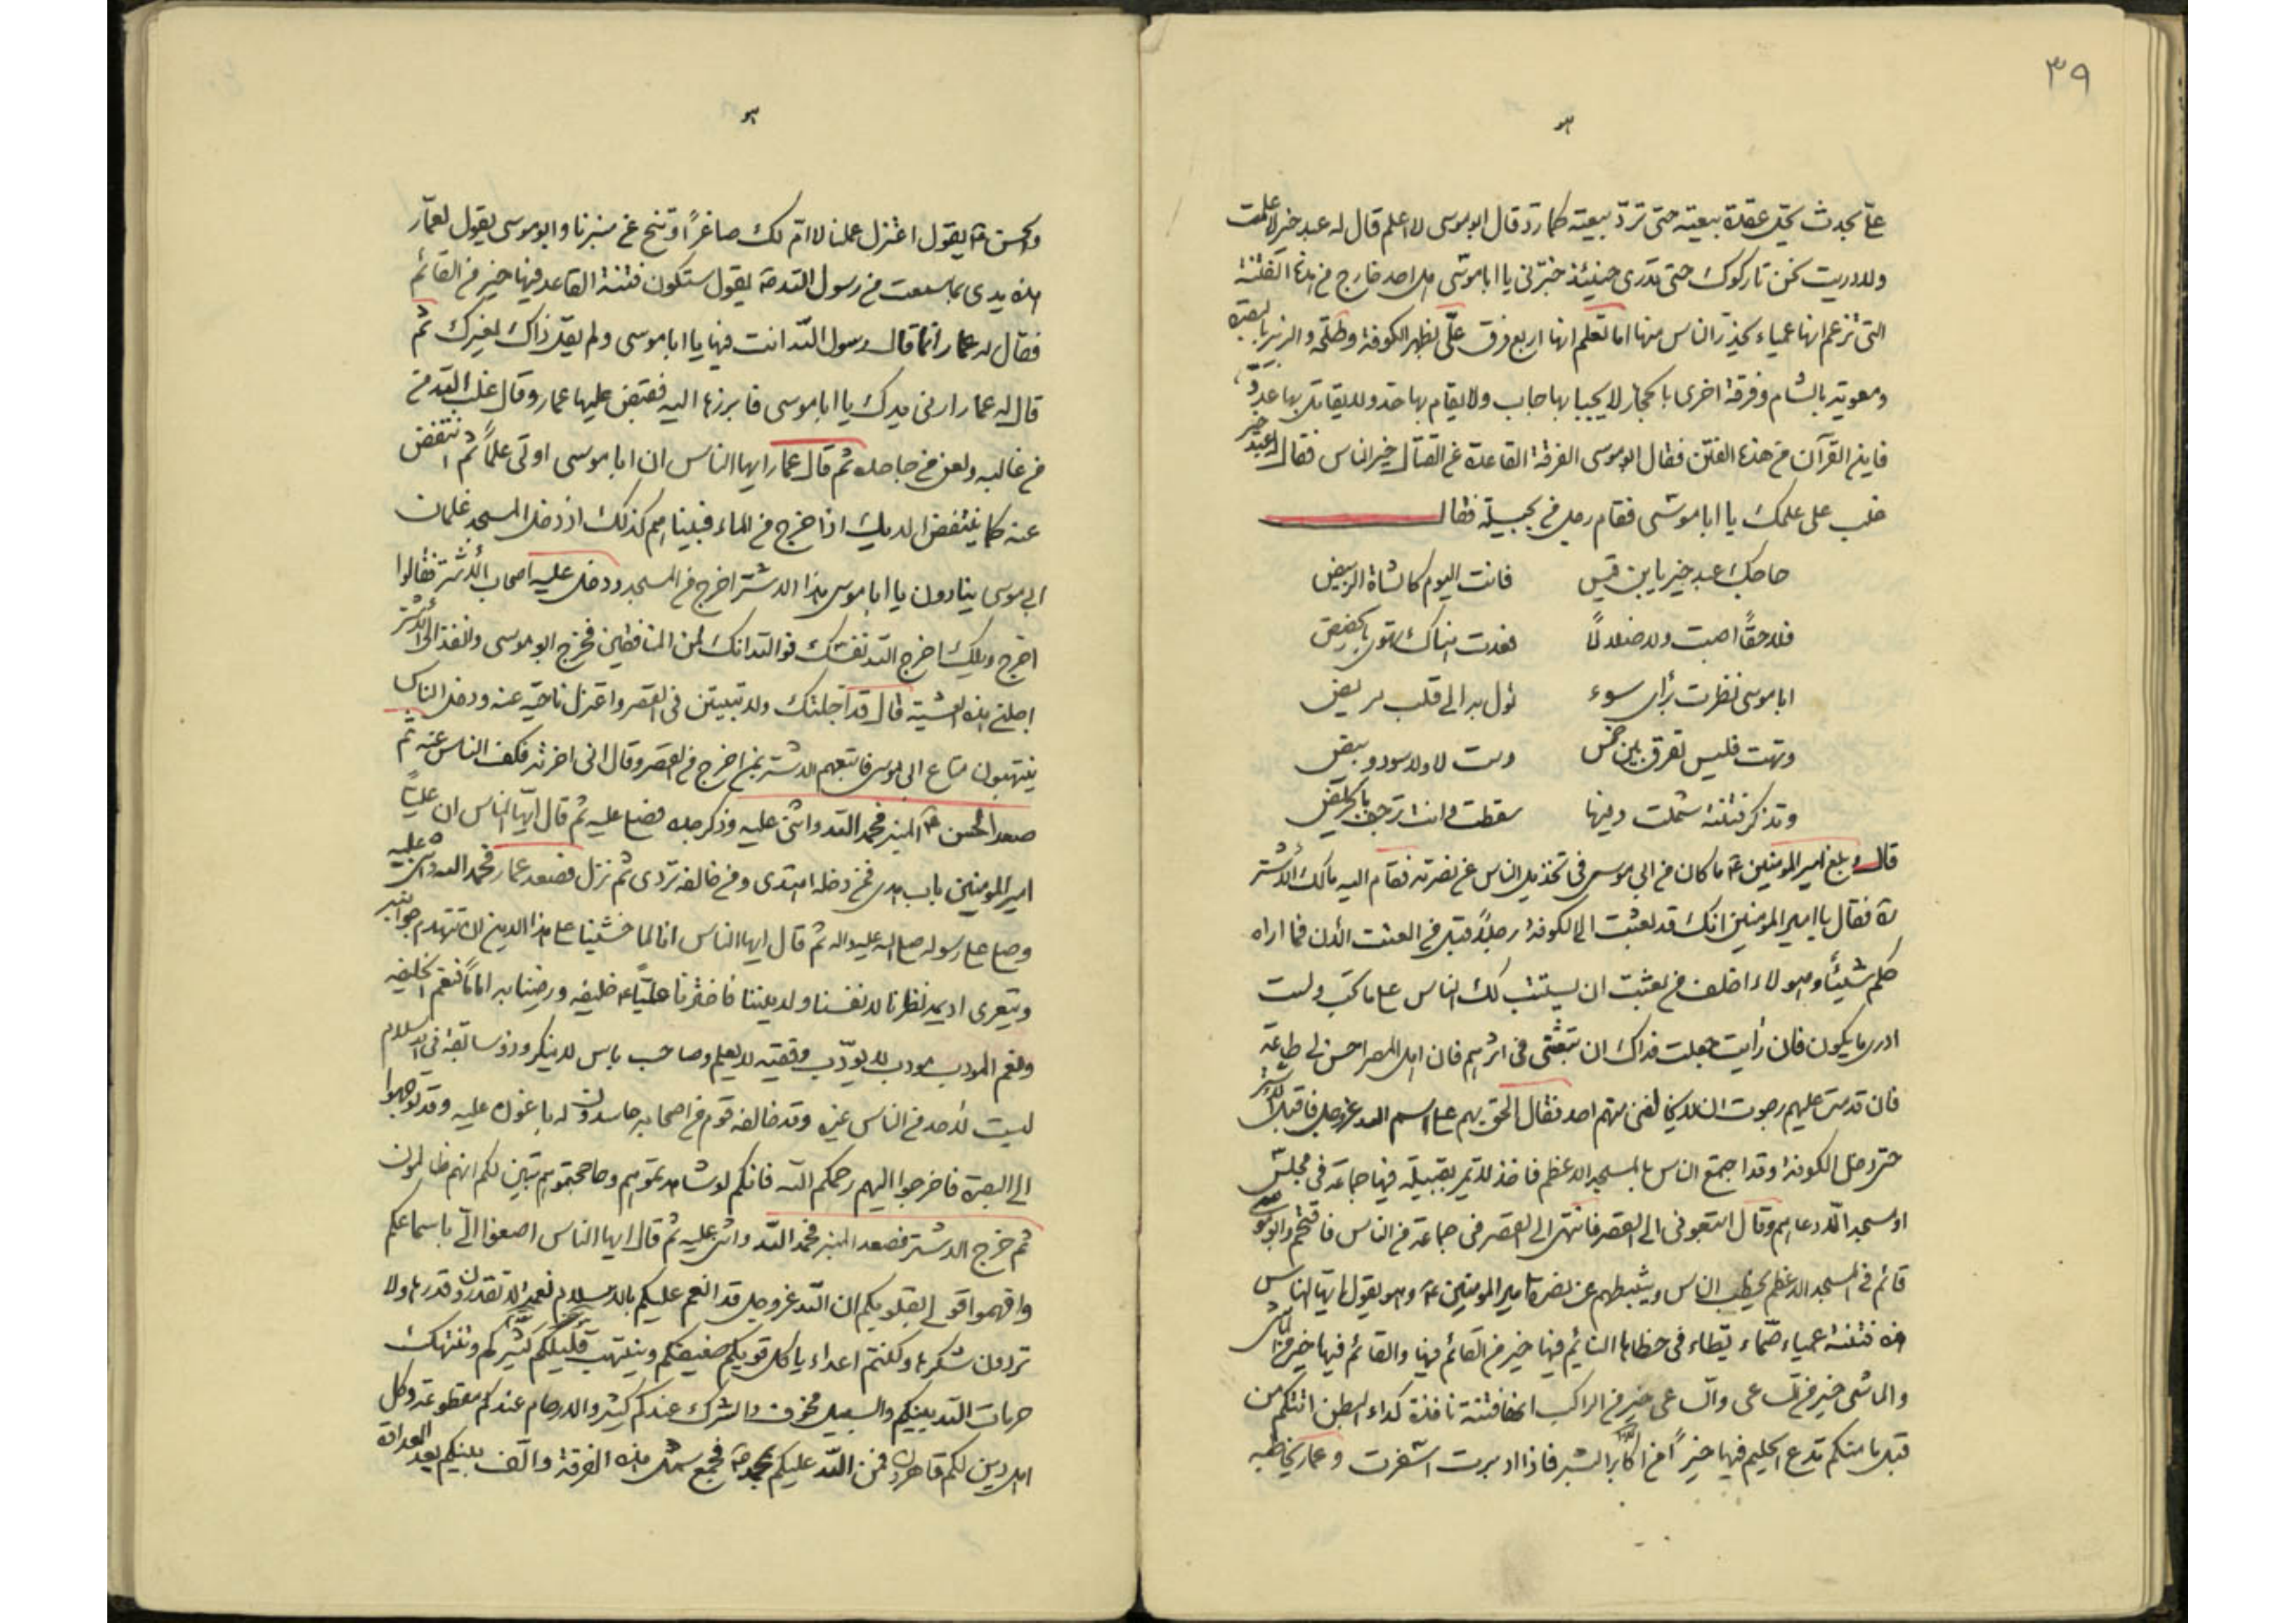 ٣٩
علىّ بحدث يحلّ عقدة بيعته حتى تردّ بيعته كما ردّ قال ابو موسى لا اعلم قال له عبد خير لا علمت
ولا دريت نحن تاركوك حتى تدرى حينئذ خبّرنى يا ابا موسى هل احد خارج من هذه الفتنة
التى تزعم انها عمياء تحذر الناس منها اما تعلم انها اربع فرق علىّ بظهر الكوفة وطلحة والزبير بالبصرة
ومعوية بالشام وفرقة اخرى بالحجاز لا يجبا بها جاب ولا يقام بها حد ولا يقاتل بها عدوّ
فاين القرآن من هذه الفتن فقال ابو موسى الفرقة القاعدة عن القتال خير الناس فقال له عبد خير
غلب على علمك يا ابا موسى فقام رجل من بجيلة فقال
حاجك عبد خير يا بن قيس فانت اليوم كالشاة الربيض
فلا حقّاً اصبت ولا ضلالاً فعدت هناك تهوى بالحضيض
ابا موسى نظرت برأى سوء تؤل به الى قلب مريض
وتهت فليس تفرق بين خمس وست لا ولا سود وبيض
وتذكر فتنة شملت وفيها سقطت وانت ترجف بالجريض
قال وبلغ امير المومنين ع ما كان من ابى موسى فى تخذيل الناس عن نصرته فقام اليه مالك الأشتر
ره فقال يا امير المومنين انك قد بعثت الى الكوفة رجلاً قبل من العنت الأن فما اراه
حكم شيئاً وهولاء اخلف من بعثت ان يستتب لك الناس على ما تحب ولست
ادرى ما يكون فان رأيت جعلت فداك ان تبعثنى فى اثرهم فان اهل المصر احسن لى طاعة
فان قدمت عليهم رجوت ان لا يخالفنى منهم احد فقال الحق بهم على اسم الله عز وجل فاقبل الأشتر
حتى دخل الكوفة وقد اجتمع الناس بالمسجد الاعظم فاخذ لا يمر بقبيلة فيها جماعة فى مجلس
او مسجد الّا دعاهم وقال اتبعونى الى القصر فانتهى الى القصر فى جماعة من الناس فاقتحم وابو موسى
قائم فى المسجد الاعظم يخطب الناس ويثبطهم عن نصرة امير المومنين ع وهو يقول ايها الناس
هذه فتنة عمياء صمّاء يطاء فى خطامها النائم فيها خير من القائم فيها والقائم فيها خير من الماشى
والماشى خير من الساعى والساعى خير من الراكب انها فتنة نافذة كداء البطن اتتكم من
قبل مامنكم تدع الحليم فيها خيراً من اكابر البشر فاذا ادبرت اسفرت وعمار يخاطبه
والحسن ع يقول اعتزل عملنا لا امّ لك صاغراً وتنح عن منبرنا وابو موسى يقول لعمّار
هذه يدى بما سمعت من رسول الله ص يقول ستكون فتنة القاعد فيها خير من القائم
فقال له عمار انما قال رسول الله انت فيها يا ابا موسى ولم يقل ذاك لغيرك ثم
قال له عمار ارنى يدك يا ابا موسى فابرزها اليه فقبض عليها عمار وقال غلب الله من
من غالبه ولعن من جاحده ثم قال عمار ايها الناس ان ابا موسى اوتى علماً ثم انتفض
عنه كما ينتفض الديك اذا خرج من الماء فبينا هم كذلك اذ دخل المسجد غلمان
ابى موسى ينادون يا ابا موسى هذا الاشتر اخرج من المسجد ودخل عليه اصحاب الأشتر فقالوا
اخرج ويلك اخرج الله نفسك فوالله انك لمن المنافقين فخرج ابو موسى وانفذ الى الأشتر
اجلنى هذه العشية قال قد اجلتك ولا تبيتن فى القصر واعتزل ناحية عنه ودخل الناس
ينتهبون متاع ابى موسى فاتبعهم الاشتر بمن اخرج من القصر وقال انى اخرته فكف الناس عنه ثم
صعد الحسن ع المنبر فحمد الله واثنى عليه وذكر جده فصلى عليه ثم قال ايها الناس ان عليّاً
امير المومنين باب هدى فمن دخله اهتدى ومن خالفه تردى ثم نزل فصعد عمار فحمد الله واثنى عليه
وصلى على رسوله صلى الله عليه واله ثم قال ايها الناس انا لما خشينا على هذا الدين ان تنهدم جوانبه
ويتعرى اديمه نظرنا لانفسنا ولديننا فاخترنا عليّاً ع خليفه ورضينا به اماماً فنعم الخليفه
ونعم المودب مودب لا يودّب وفقيه لا يعلم وصاحب باس لا ينكر وذو سابقة فى الاسلام
ليست لأحد من الناس غيره وقد خالفه قوم من اصحابه حاسدون له باغون عليه وقد توجهوا
الى البصرة فاخرجوا اليهم رحمكم الله فانكم لو شاهدتموهم وحاججتموهم تبين لكم انهم ظالمون
ثم خرج الاشتر فصعد المنبر فحمد الله واثنى عليه ثم قال ايها الناس اصغوا الىّ باسماعكم
وافهموا قولى بقلوبكم ان الله عز وجل قد انعم عليكم بالاسلام نعمة لا تقدرون قدرها ولا
تردون شكرها وكنتم اعداء ياكل قويكم ضعيفكم وينتهب كثيركم قليلكم وتنتهك
حرمات الله بينكم والسبيل مخوف والشرك عندكم كثير والارحام عندكم مقطوعة وكل
اهل دين لكم قاهرون فمن الله عليكم بمحمد ص فجمع شمل هذه الفرقة والّف بينكم بعد العداوة